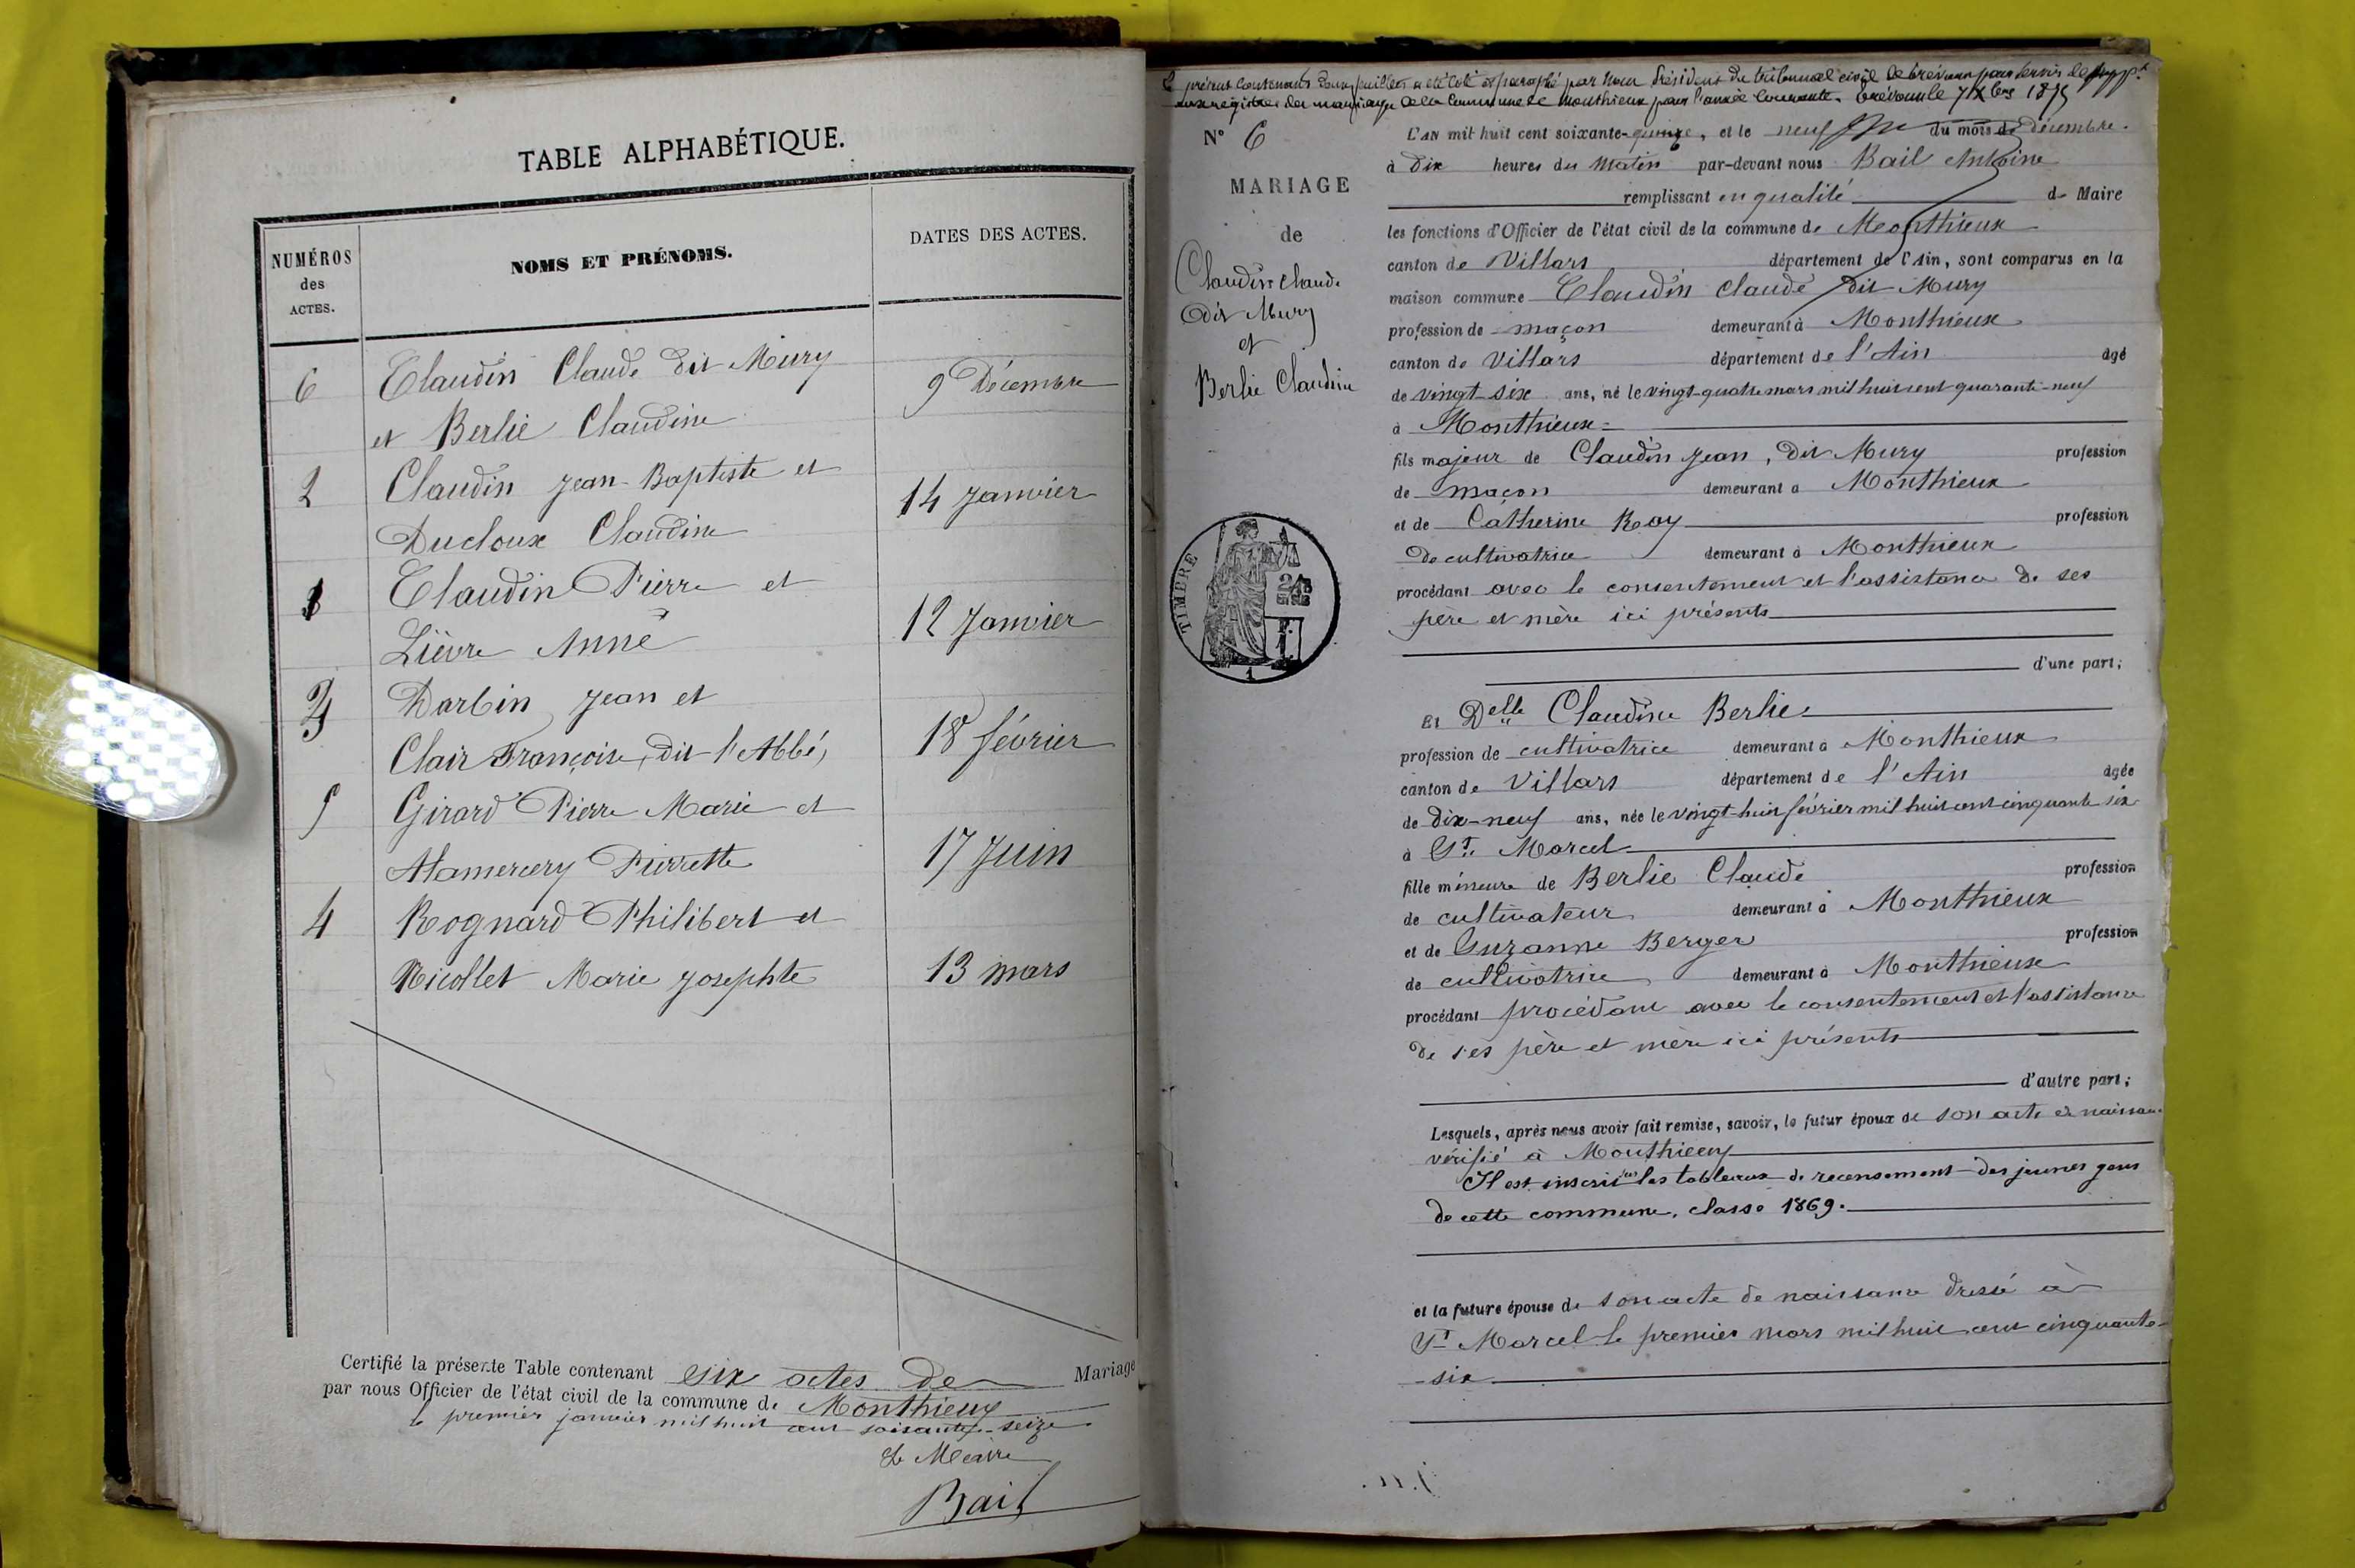 TABLE ALPHABÉTIQUE.
NUMÉROS
des
ACTES.
NOMS ET PRÉNOMS.
DATES DES ACTES.
6 Claudin Claude dit Mury
et Berlie Claudine
9 Décembre
2 Claudin Jean-Baptiste et
Ducloux Claudine
14 Janvier
1 Claudin Pierre et
Lièvre Anne
12 Janvier
3 Darbin Jean et
Clair Françoise, dit l'Abbé,
18 février
5 Girard Pierre Marie et
Alamercery Pierrette
17 Juin
4 Rognard Philibert et
Nicollet Marie Josephte
13 mars
Certifié la présente Table contenant six actes de Mariage
par nous Officier de l'état civil de la commune de Monthieux
le premier janvier mil huit cent soixante-seize
Le Maire
Bail
Le présent contenant deux feuillets a été coté et paraphé par nous Président du tribunal civil de Trévoux pour servir de suppt
aux registres des mariages de la commune de Monthieux pour l'année courante. Trévoux le 7 Xbre 1875
N° 6
MARIAGE
de
Claudin Claude
dit Mury
et
Berlie Claudine
TIMBRE
L'AN mil huit cent soixante-quinze, et le neuf du mois de décembre.
à dix heures du matin par-devant nous Bail Antoine
remplissant en qualité de Maire
les fonctions d'Officier de l'état civil de la commune de Monthieux
canton de Villars département de l'Ain, sont comparus en la
maison commune Claudin Claude dit Mury
profession de maçon demeurant à Monthieux
canton de Villars département de l'Ain âgé
de vingt-six ans, né le vingt-quatre mars mil huit cent quarante-neuf
à Monthieux
fils majeur de Claudin Jean, dit Mury profession
de maçon demeurant à Monthieux
et de Catherine Roy profession
de cultivatrice demeurant à Monthieux
procédant avec le consentement et l'assistance de ses
père et mère ici présents
d'une part;
Et Delle Claudine Berlie
profession de cultivatrice demeurant à Monthieux
canton de Villars département de l'Ain âgée
de dix-neuf ans, née le vingt-huit février mil huit cent cinquante six
à St. Marcel
fille mineure de Berlie Claude profession
de cultivateur demeurant à Monthieux
et de Suzanne Berger profession
de cultivatrice demeurant à Monthieux
procédant procédant avec le consentement et l'assistance
de ses père et mère ici présents
d'autre part;
Lesquels, après nous avoir fait remise, savoir, le futur époux de son acte de naissance
vérifié à Monthieux
Il est inscrit sur les tableaux de recensement des jeunes gens
de cette commune, classe 1869.
et la future épouse de son acte de naissance dressé à
St Marcel le premier mars mil huit cent cinquante-
-six